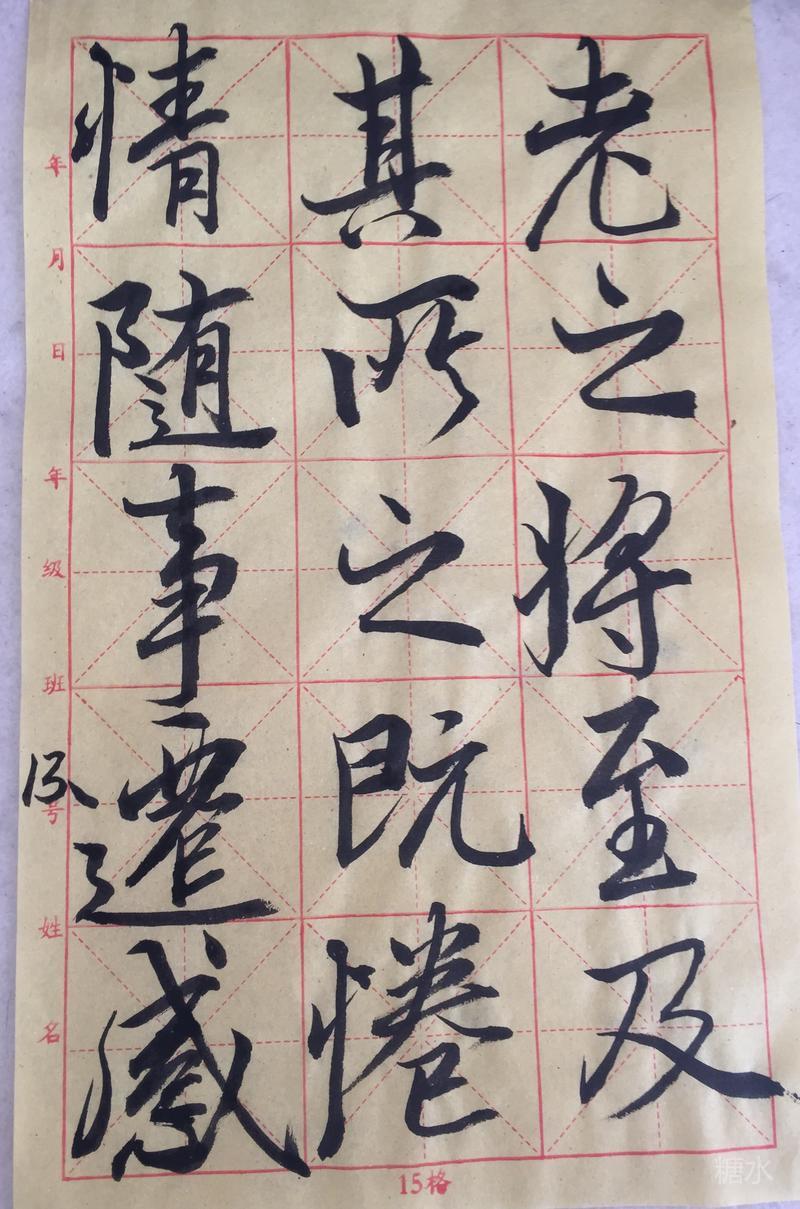 老之将至及
其所之既惓
情随事遷感
年月日
年级班13号
姓名
15格
糖水